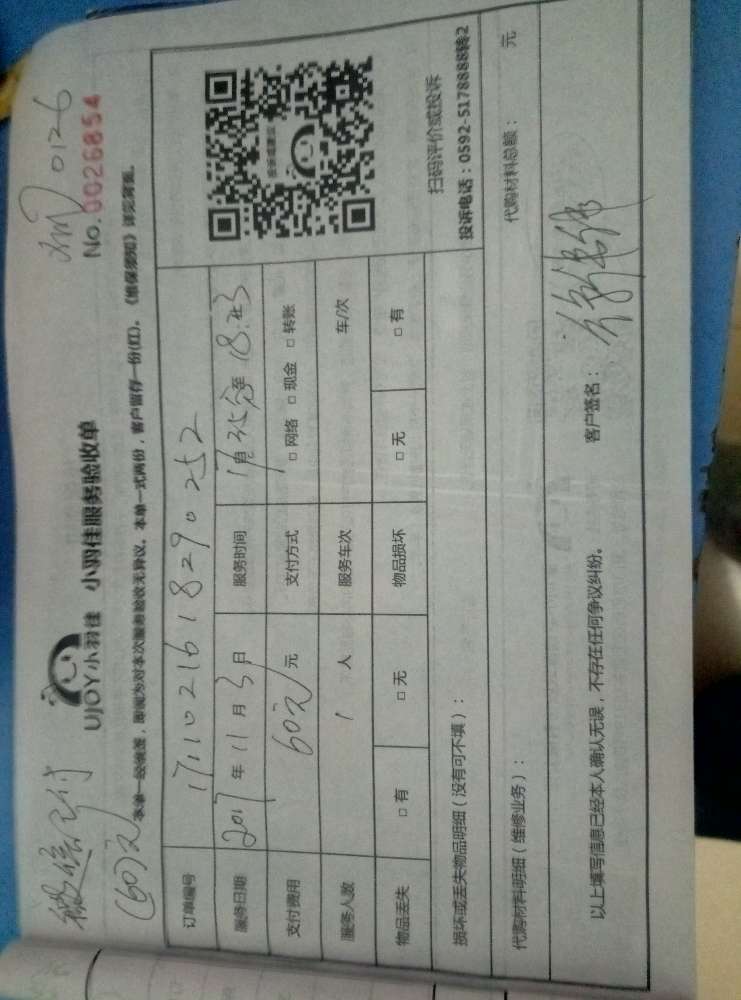 微信支付
(60元)
0126
No.0026854
UJOY小羽佳 小羽佳服务验收单
本单一经签签，即视为对本次服务验收无异议。本单一式两份，客户留存一份(红)。《维保须知》详见背面。
订单编号 1711021618290252
服务日期 2017年11月3日 服务时间 自 至 18:
支付费用 60元 元 支付方式 □网络 □现金 □转账
服务人数 1 人 服务车次 车/次
物品丢失 □有 □无 物品损坏 □无 □有
投诉或建议
扫码评价或投诉
投诉电话：0592-5178888转2
损坏或丢失物品明细（没有可不填）：
代购材料明细（维修业务）： 代购材料总额： 元
以上填写信息已经本人确认无误，不存在任何争议纠纷。 客户签名：